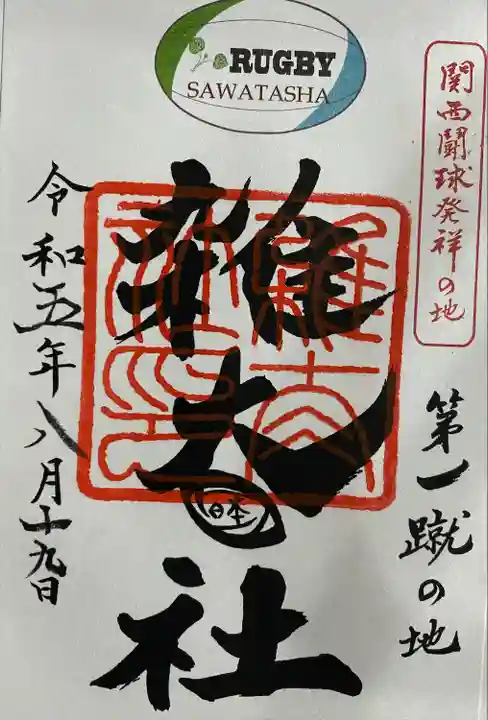 RUGBY
SAWATASHA
関西闘球発祥の地
第一蹴の地
雑太社
日本
令和五年八月十九日